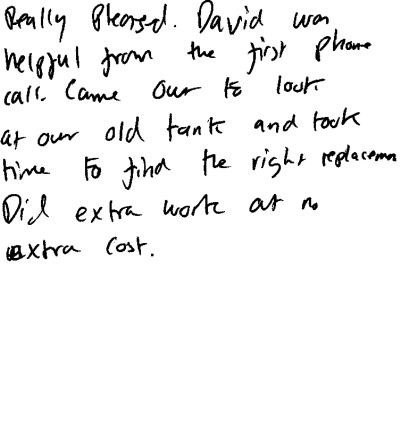 Really pleased. David was
helpful from the first phone
call. Came out to look
at our old tank and took
time to find the right replacemen
Did extra work at no
extra cost.